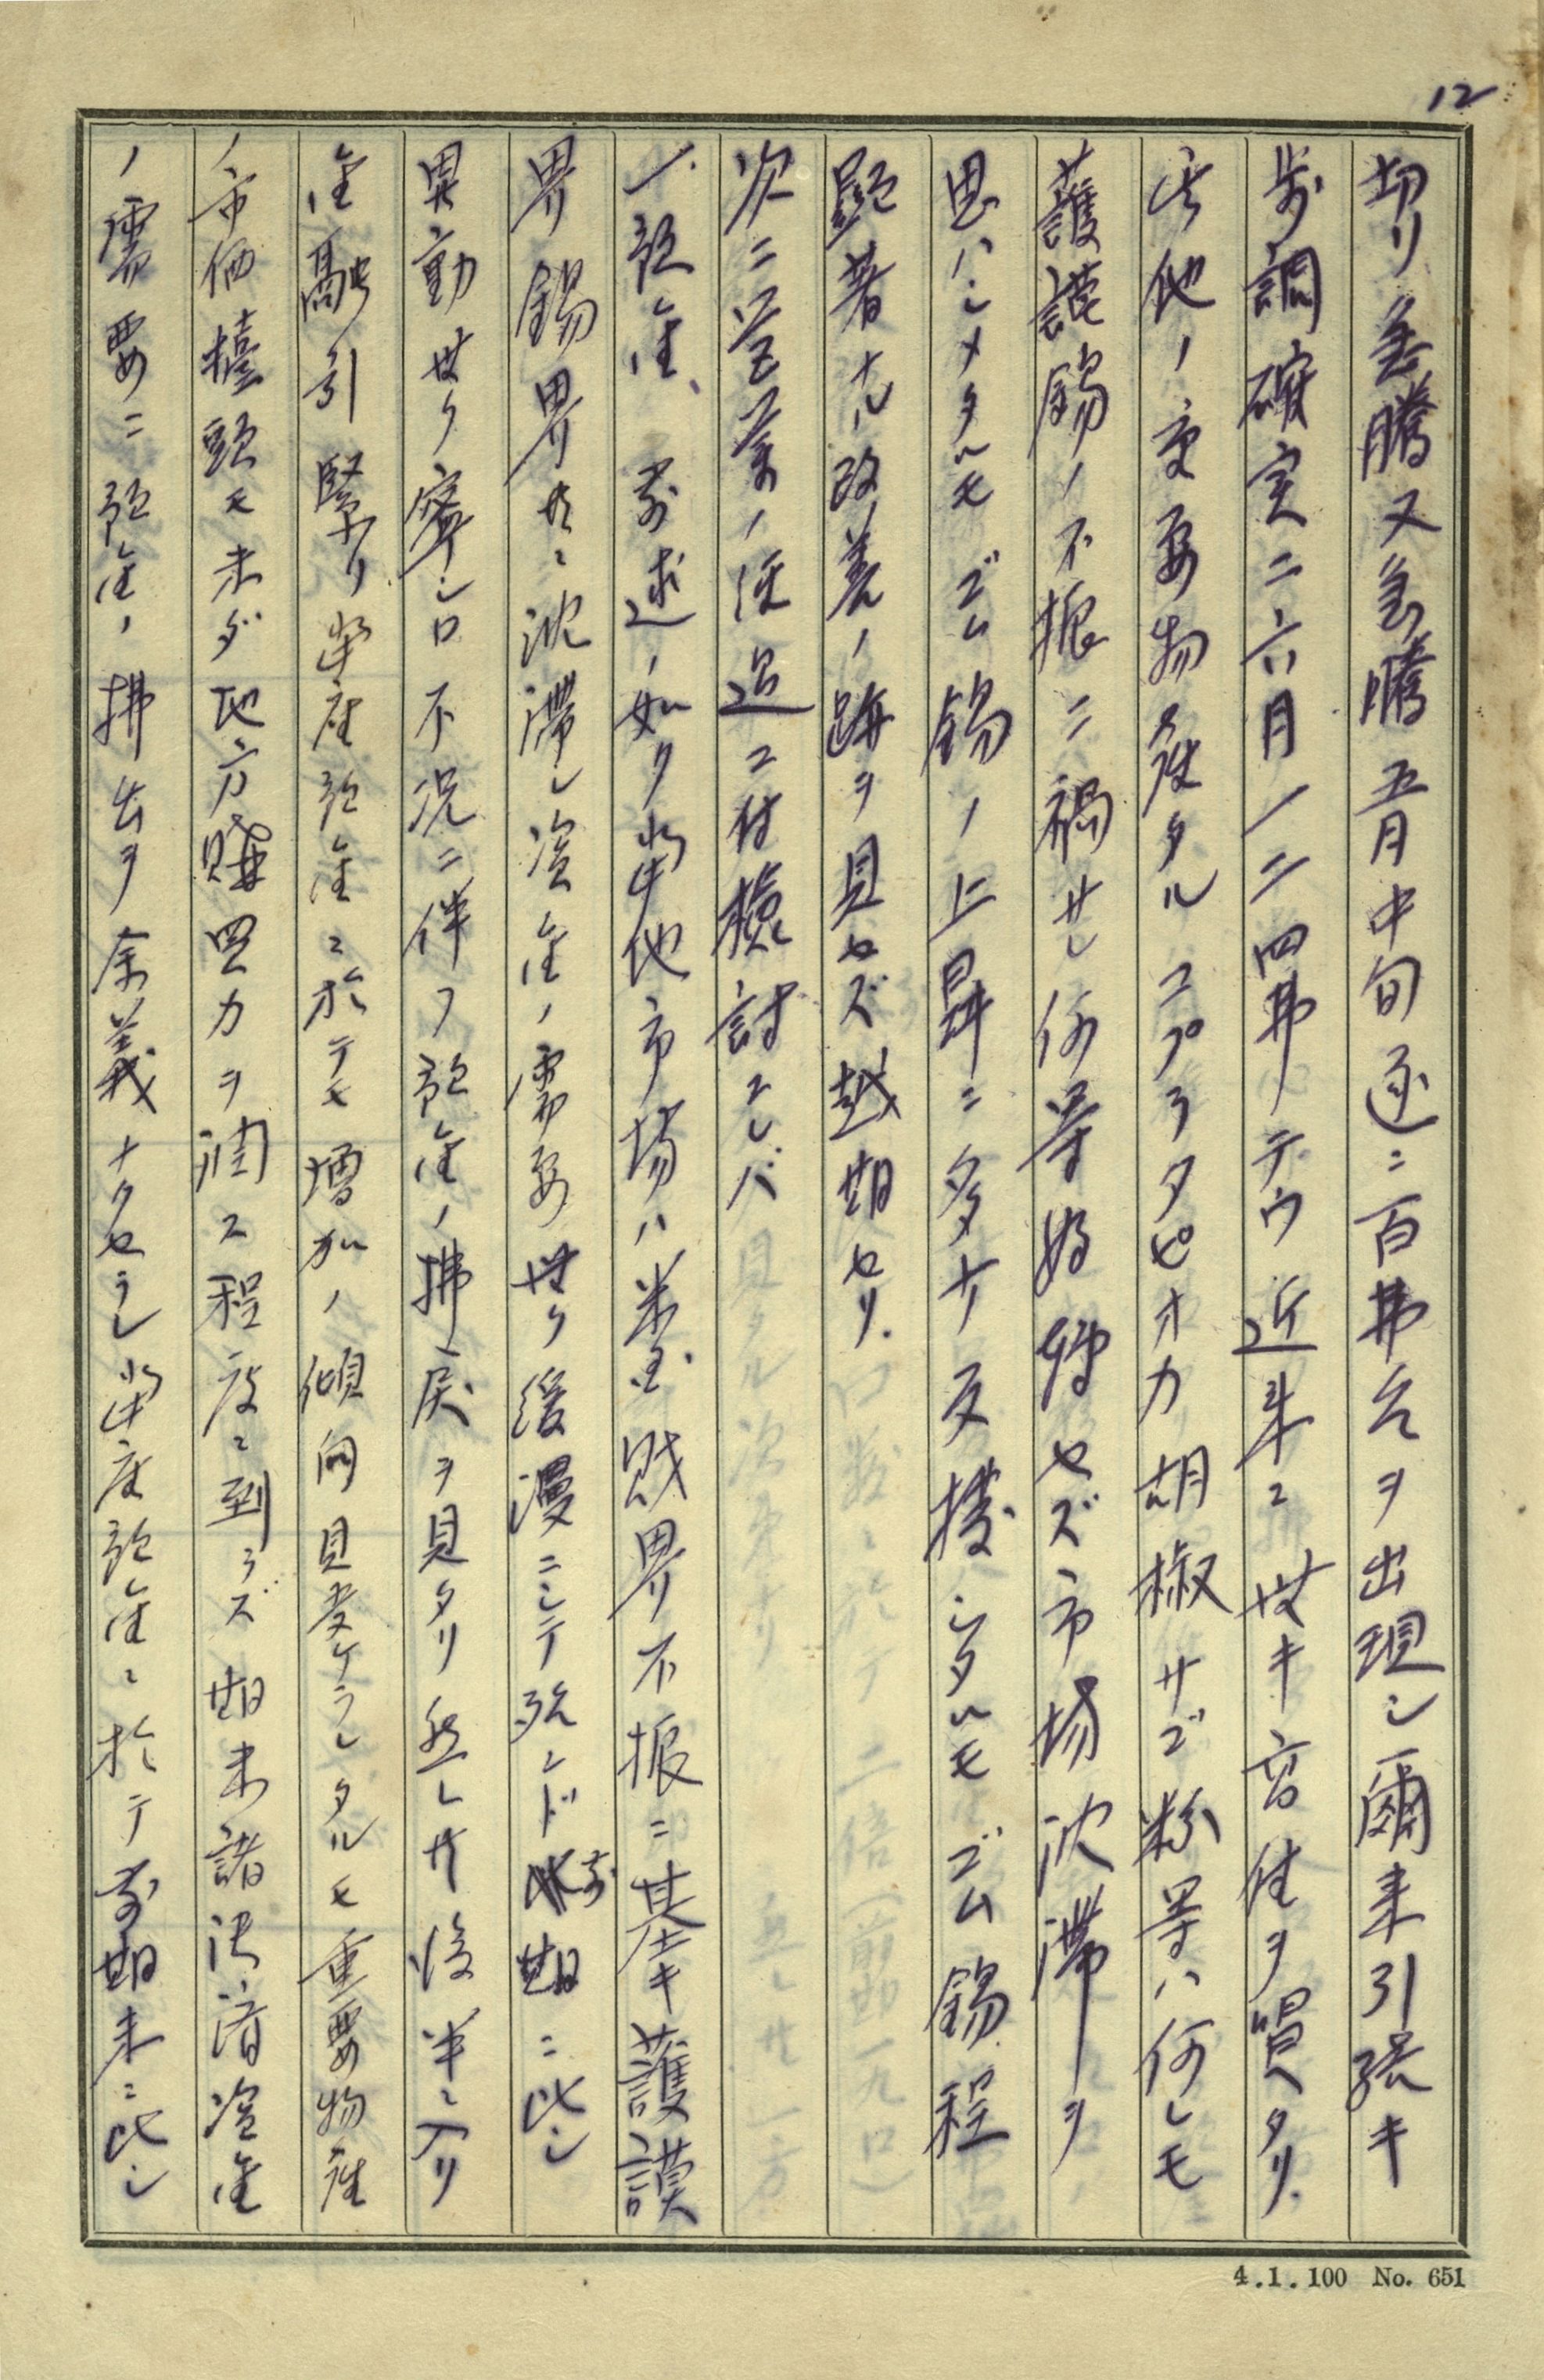 12
切リ急騰又急騰五月中旬遂ニ百弗台ヲ出現シ爾来引続キ
歩調確実ニ六月一二四弗テウ近来ニ無キ高値ヲ唱ヘタリ.
其他ノ重要物産タルコプラタピオカ胡椒サゴ粉等ハ何レモ
護謨錫ノ不振ニ禍サレ何等好転セズ市場沈滞ヲ
思ハシメタルモゴム錫ノ上昇ニ多少反撥シタルモゴム錫程
顕著ナル改善ノ跡ヲ見セズ越期セリ.
次ニ営業ノ経過ニ付検討スレバ
一.預金、前述ノ如ク当他市場ハ米国財界不振ニ基キ護謨
界錫界共ニ沈滞シ資金ノ需要無ク緩漫ニシテ殆ンド前期ニ比シ
異動無ク寧シロ不況ニ伴フ預金ノ払戻ヲ見タリ然レ共後半ニ入リ
金融引緊リ当座預金ニ於テモ増加ノ傾向見受ケラレタルモ重要物産
ノ市価擡頭モ未ダ地方購買力ヲ潤ス程度ニ到ラズ期末諸決済資金
ノ需要ニ預金ノ払出ヲ余義ナクセラレ当座預金ニ於テ前期末ニ比シ
4.1.100 No. 651